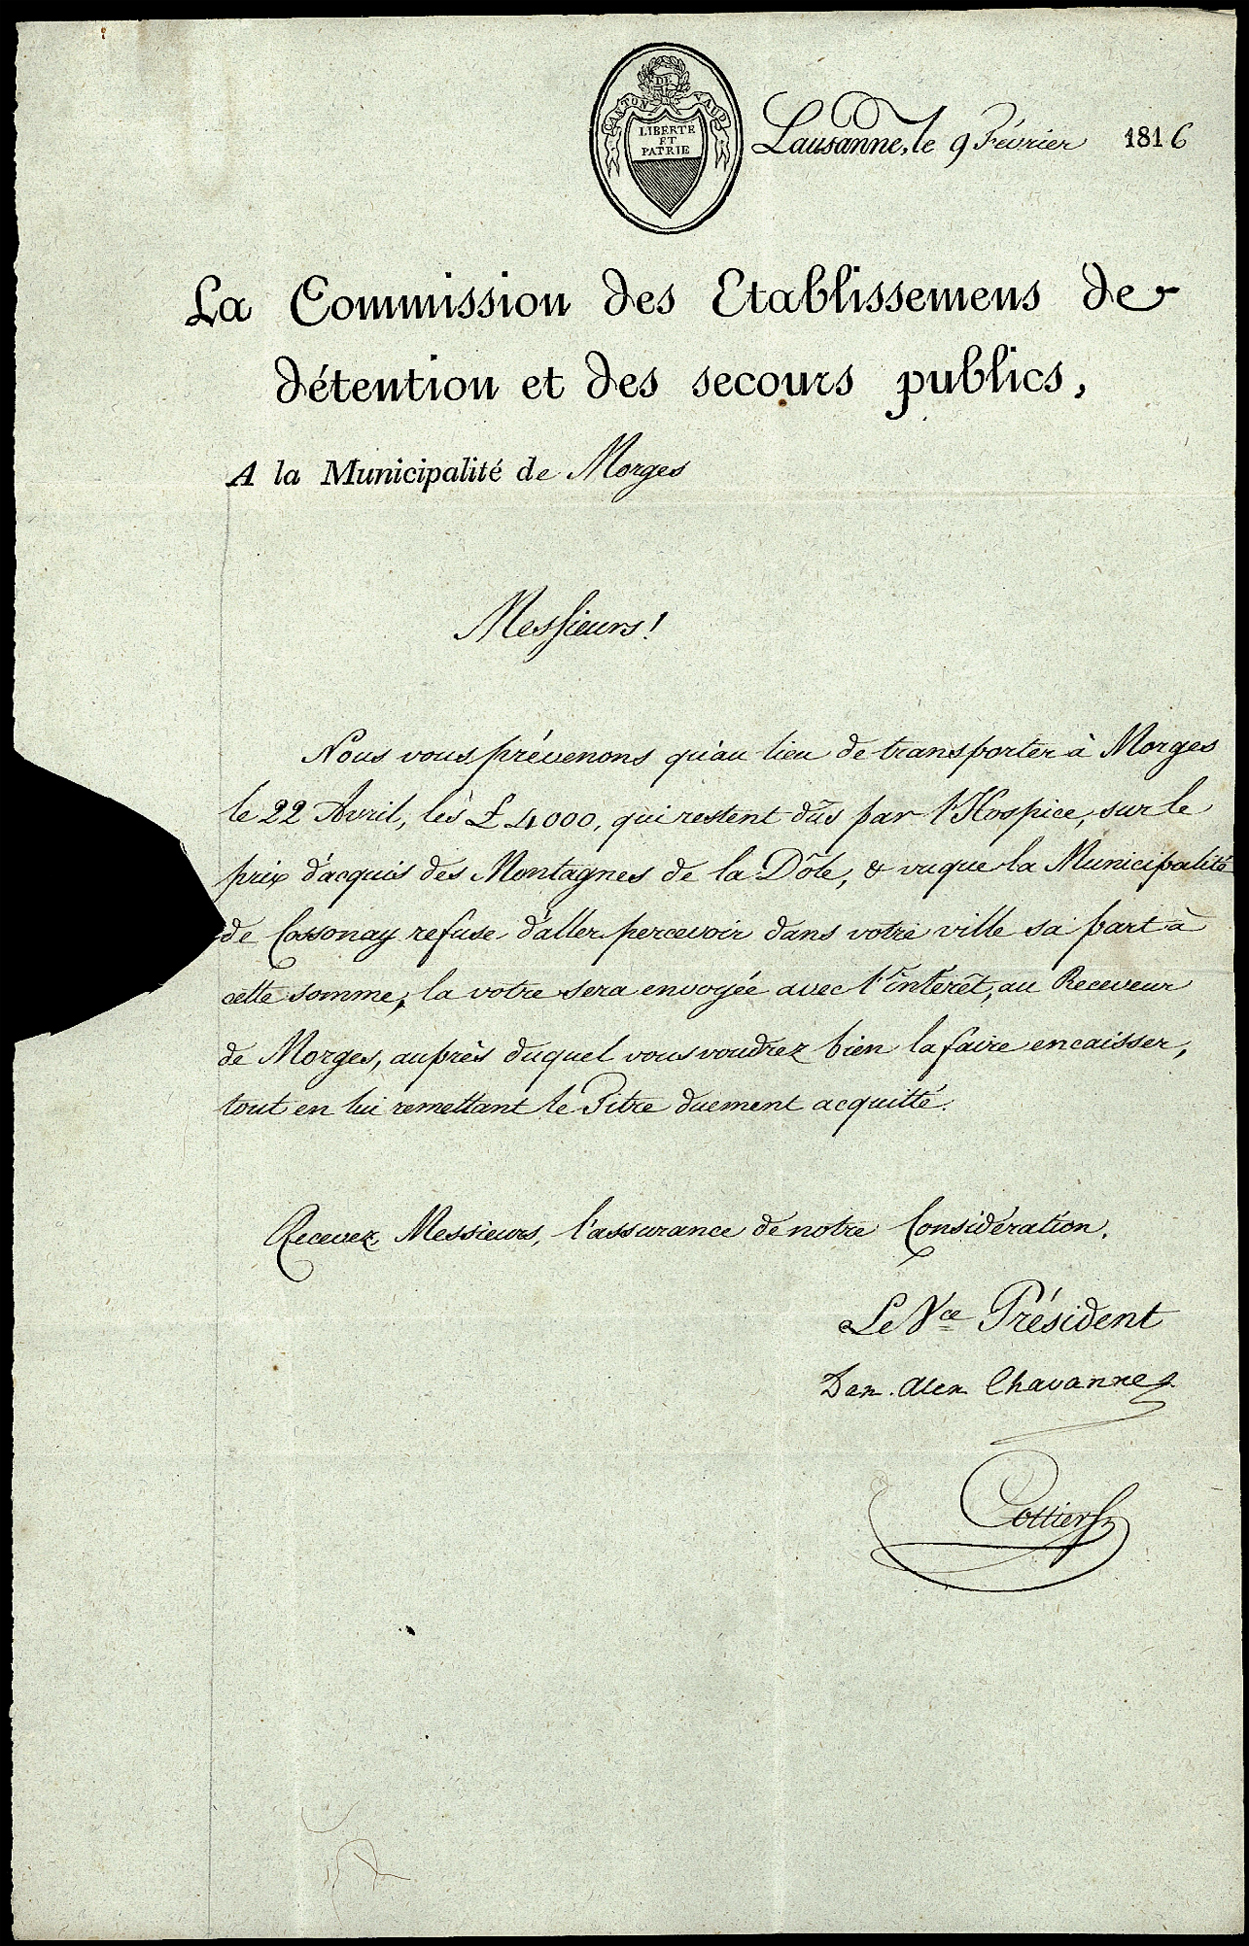 CANTON DE VAUD
LIBERTE
ET
PATRIE
Lausanne, le 9 Février 1816
La Commission des Etablissemens de
détention et des secours publics,
A la Municipalité de Morges
Messieurs!
Nous vous prévenons qu'au lieu de transporter à Morges
le 22 Avril, les £ 4000, qui restent dûs par l'Hospice, sur le
prix d'acquis des Montagnes de la Dôle, & vu que la Municipalité
de Cossonay refuse d'aller percevoir dans votre ville sa part à
cette somme, la votre sera envoyée avec l'intérêt, au Receveur
de Morges, auprès duquel vous voudrez bien la faire encaisser,
tout en lui remettant le Titre duement acquitté.
Recevez, Messieurs, l'assurance de notre Considération.
Le Vce Président
Dan. Alex Chavannes
Cottier